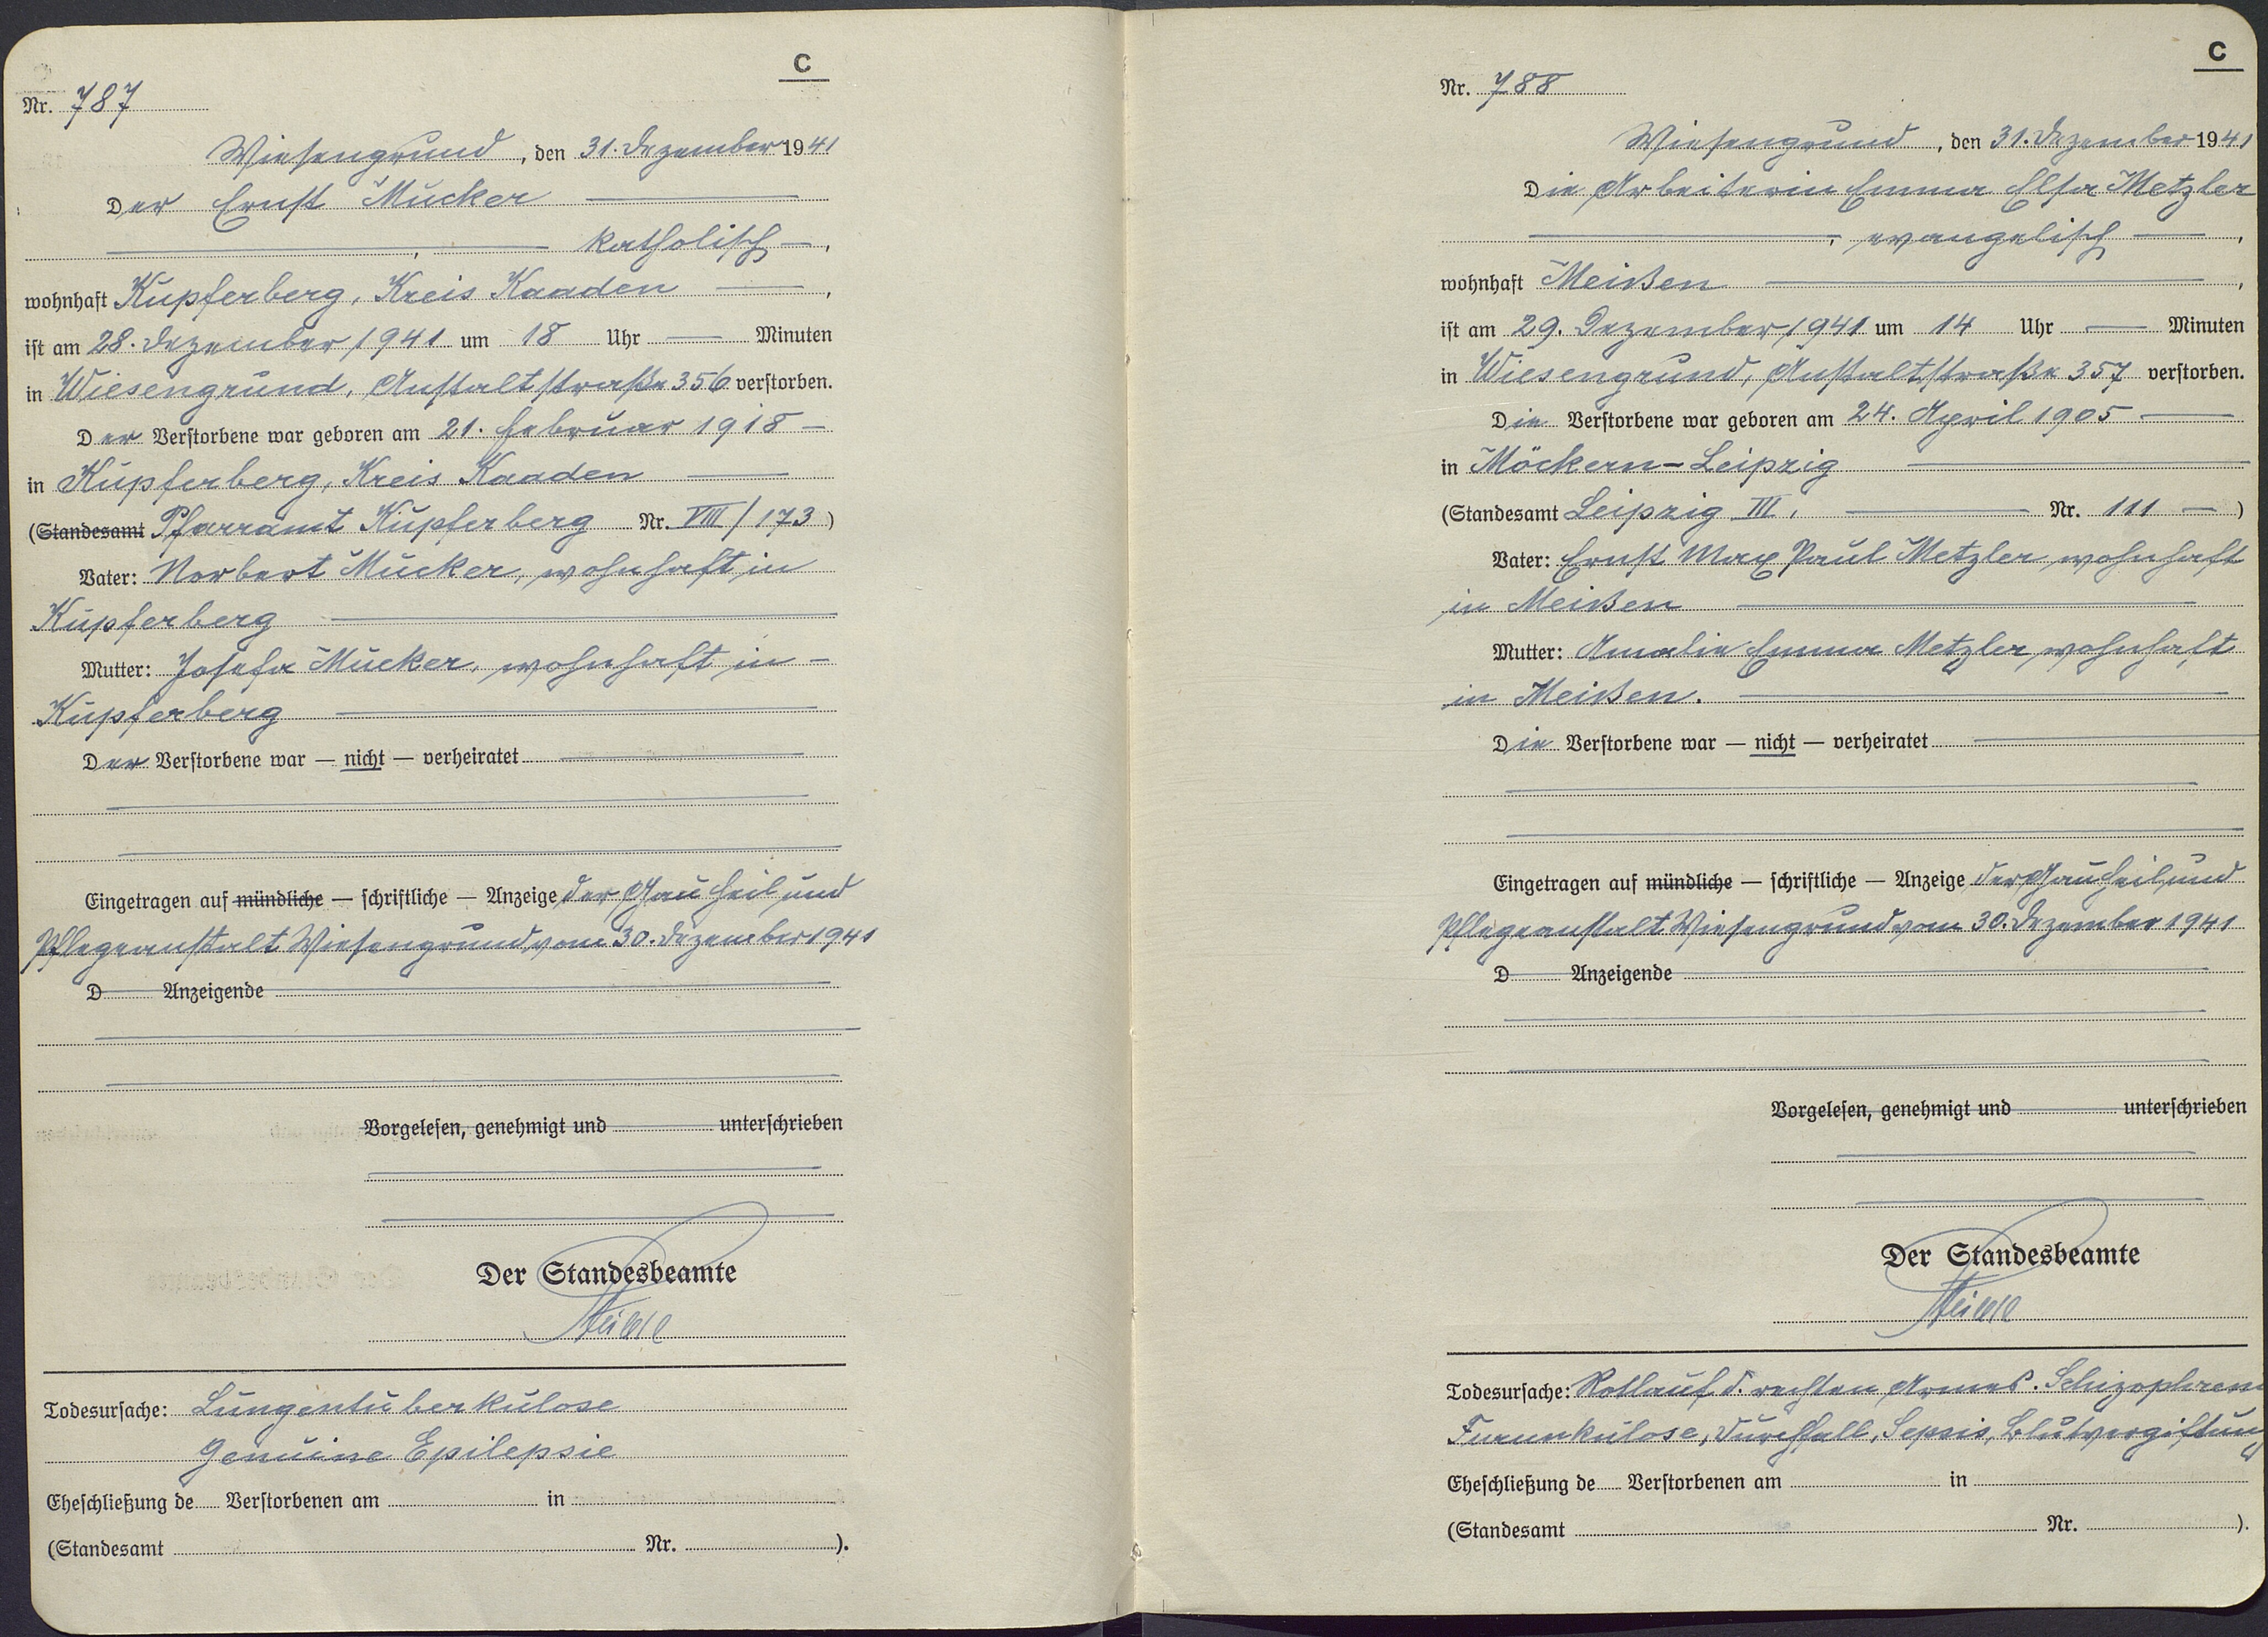 C
Nr. 787
Wiesengrund, den 31. Dezember 1941
Der Ernst Mucker
katholisch,
wohnhaft Kupferberg, Kreis Kaaden,
ist am 28. Dezember 1941 um 18 Uhr — Minuten
in Wiesengrund, Anstaltstraße 356 verstorben.
Der Verstorbene war geboren am 21. Februar 1918
in Kupferberg, Kreis Kaaden
(Standesamt Pfarramt Kupferberg Nr. VIII/173)
Vater: Norbert Mucker, wohnhaft in
Kupferberg
Mutter: Josefa Mucker, wohnhaft in
Kupferberg
Der Verstorbene war — nicht — verheiratet
Eingetragen auf mündliche — schriftliche — Anzeige der Gau Heil und
Pflegeanstalt Wiesengrund vom 30. Dezember 1941
D Anzeigende
Vorgelesen, genehmigt und unterschrieben
Der Standesbeamte
Todesursache: Lungentuberkulose
Genuine Epilepsie
Eheschließung de Verstorbenen am in
(Standesamt Nr. ).
C
Nr. 788
Wiesengrund, den 31. Dezember 1941
Die Arbeiterin Emma Elsa Metzler
, evangelisch,
wohnhaft Meißen,
ist am 29. Dezember 1941 um 14 Uhr — Minuten
in Wiesengrund, Anstaltstraße 357 verstorben.
Die Verstorbene war geboren am 24. April 1905
in Möckern-Leipzig
(Standesamt Leipzig III. Nr. 111)
Vater: Ernst Max Paul Metzler, wohnhaft
in Meißen
Mutter: Amalie Emma Metzler, wohnhaft
in Meißen.
Die Verstorbene war — nicht — verheiratet
Eingetragen auf mündliche — schriftliche — Anzeige der Gau Heil und
Pflegeanstalt Wiesengrund vom 30. Dezember 1941
D Anzeigende
Vorgelesen, genehmigt und unterschrieben
Der Standesbeamte
Todesursache: Rotlauf d. rechten Armes. Schizophren
Furunkulose, Durchfall, Sepsis, Blutvergiftung
Eheschließung de Verstorbenen am in
(Standesamt Nr. ).